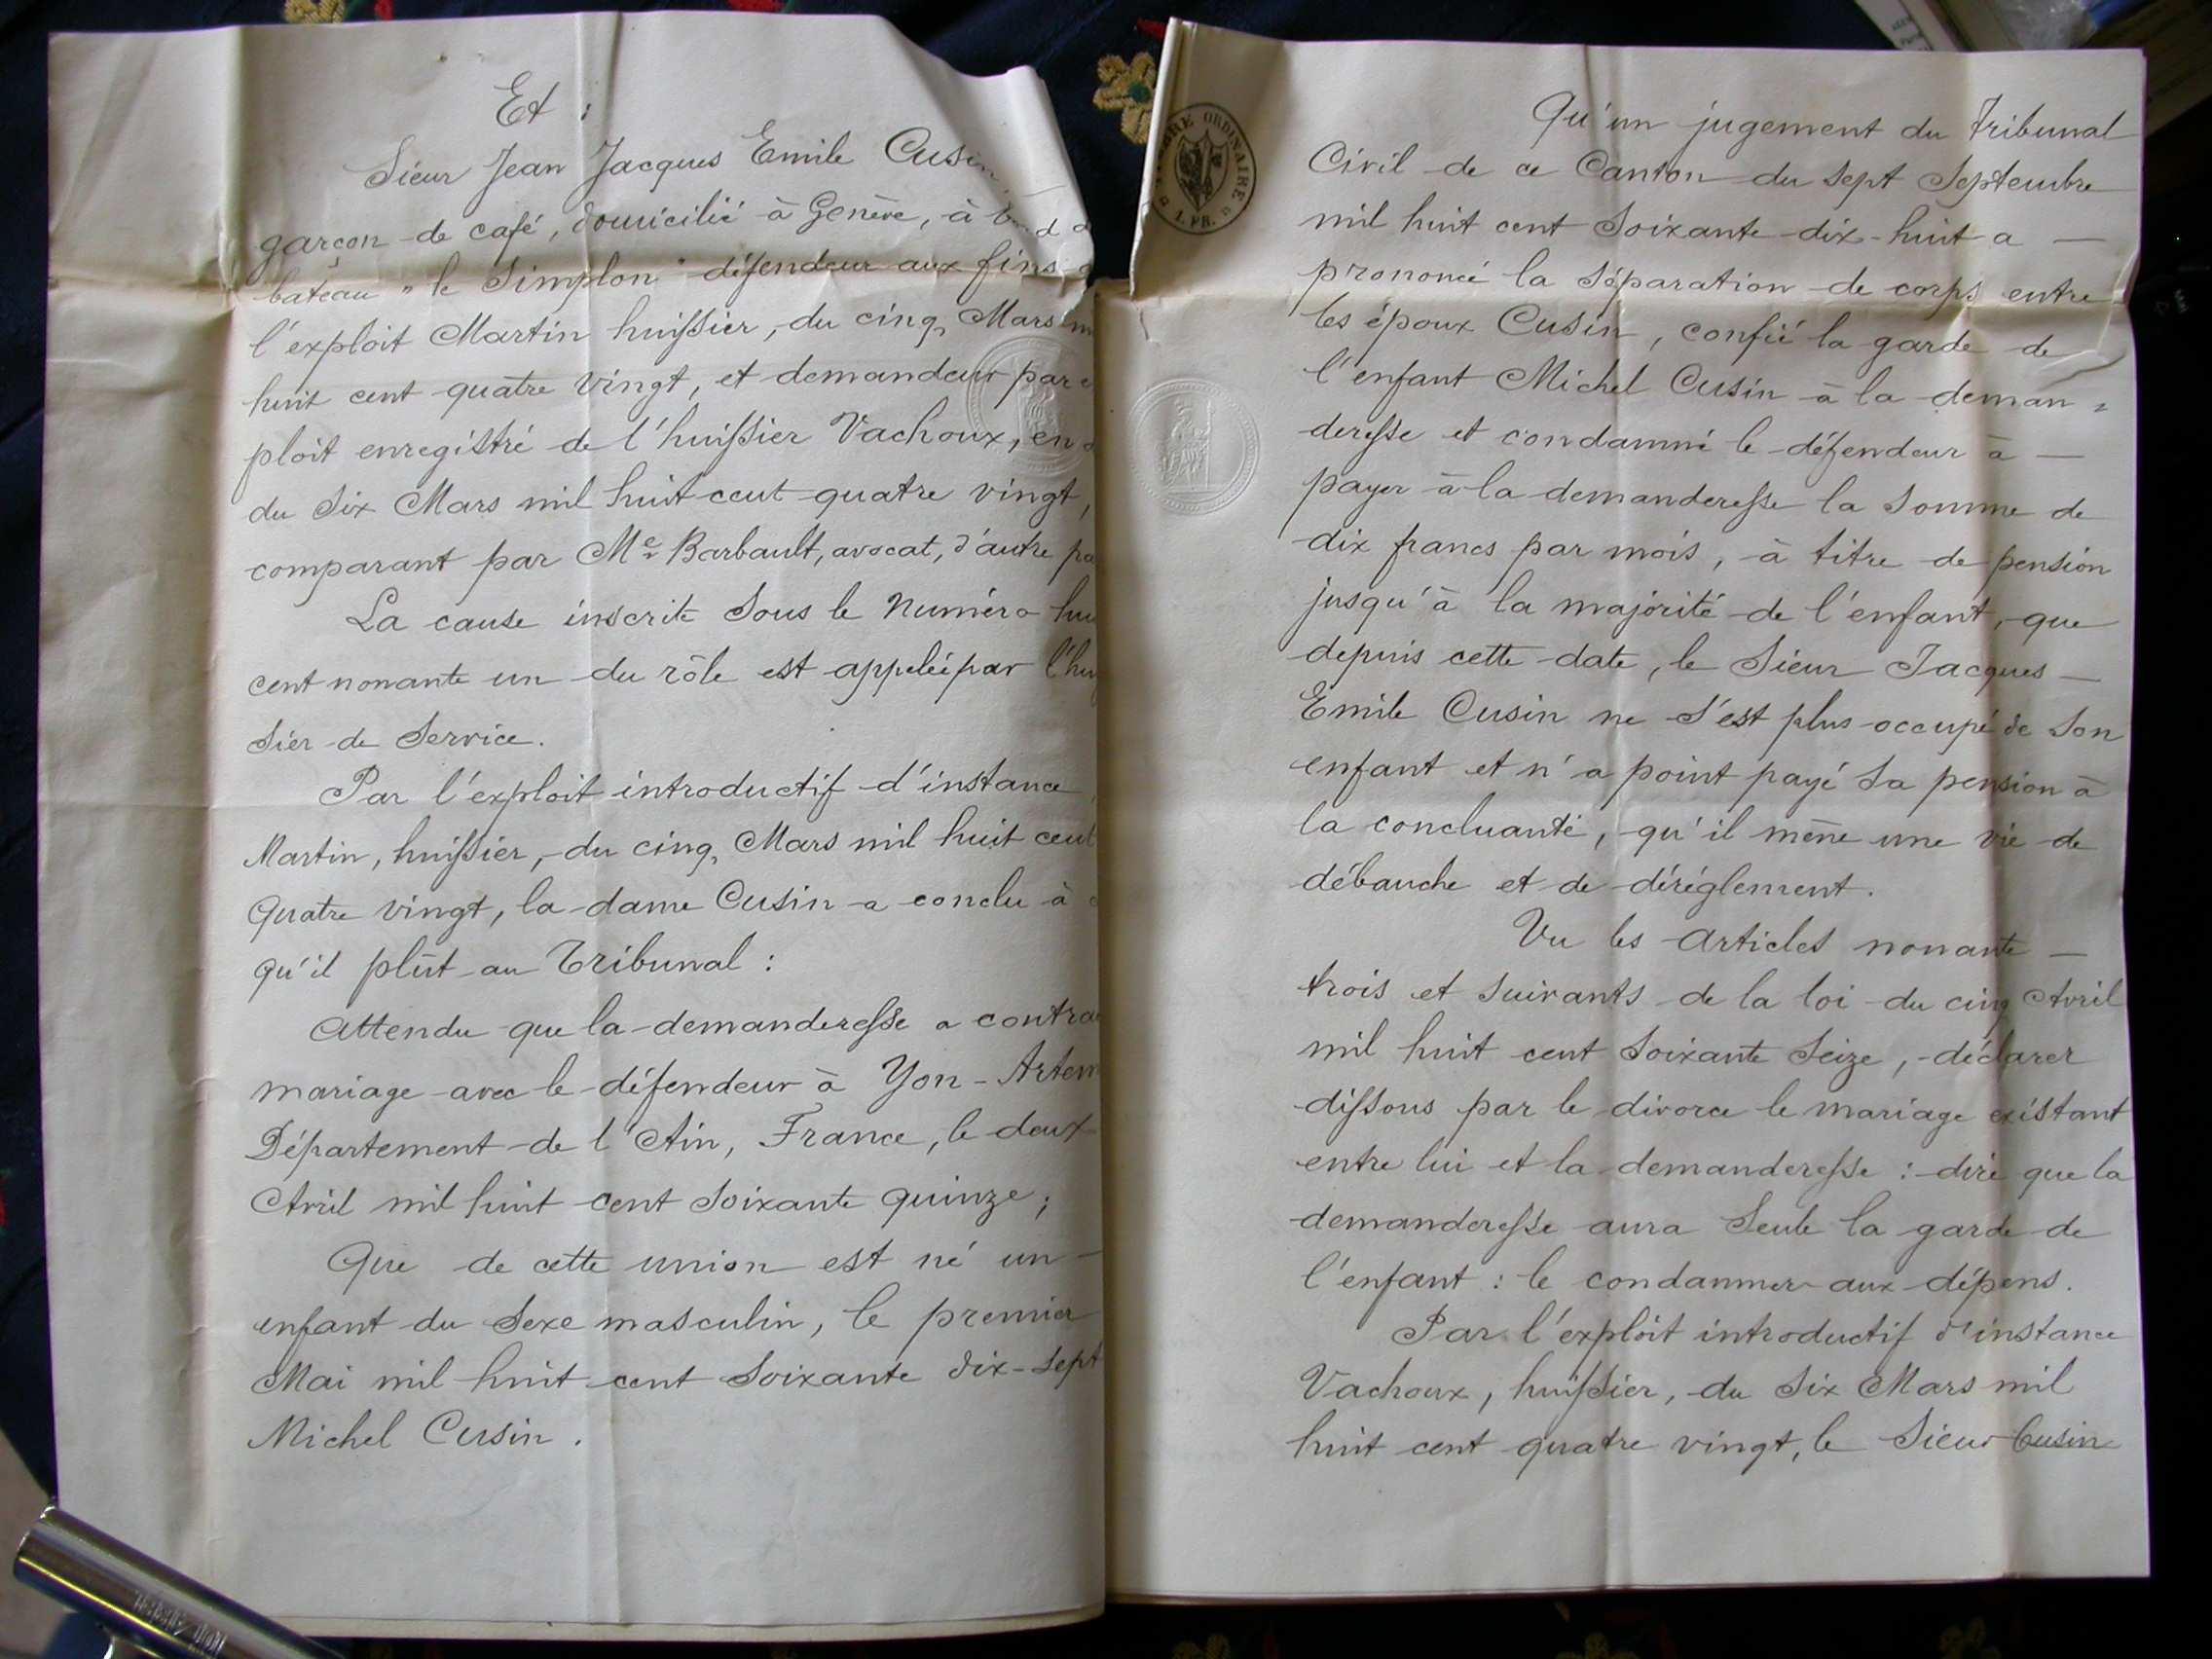 Et :
Sieur Jean Jacques Emile Cusin,
garçon de café, domicilié à Genève, à
bateau " le Simplon " défendeur aux fins
l'exploit Martin huissier, du cinq Mars
huit cent quatre vingt, et demandeur par
ploit enregistré de l'huissier Vachoux, en
du six Mars mil huit cent quatre vingt,
comparant par Me Barbault, avocat, d'autre
La cause inscrite sous le Numéro
cent nonante un du rôle est appelée par
sier de service.
Par l'exploit introductif d'instance
Martin, huissier, du cinq Mars mil huit cent
Quatre vingt, la dame Cusin a conclu à
qu'il plût au Tribunal :
Attendu que la demanderesse a
mariage avec le défendeur à Yon-
Département de l'Ain, France, le deux
Avril mil huit cent soixante quinze ;
Que de cette union est né un
enfant du sexe masculin, le premier
Mai mil huit cent soixante dix-sept
Michel Cusin .
TIMBRE ORDINAIRE
1. FR.
Qu'un jugement du Tribunal
Civil de ce Canton du sept Septembre
mil huit cent soixante dix-huit a —
prononcé la séparation de corps entre
les époux Cusin, confié la garde de
l'enfant Michel Cusin à la deman =
deresse et condamné le défendeur à —
payer à la demanderesse la somme de
dix francs par mois, à titre de pension
jusqu'à la majorité de l'enfant, que
depuis cette date, le Sieur Jacques —
Emile Cusin ne s'est plus occupé de son
enfant et n'a point payé sa pension à
la concluante, qu'il mène une vie de
débauche et de déréglement.
Vu les Articles nonante —
trois et suivants de la loi du cinq Avril
mil huit cent soixante seize, déclarer
dissous par le divorce le mariage existant
entre lui et la demanderesse : dire que la
demanderesse aura seule la garde de
l'enfant : le condamner aux dépens.
Par l'exploit introductif d'instance
Vachoux, huissier, du six Mars mil
huit cent quatre vingt, le Sieur Cusin